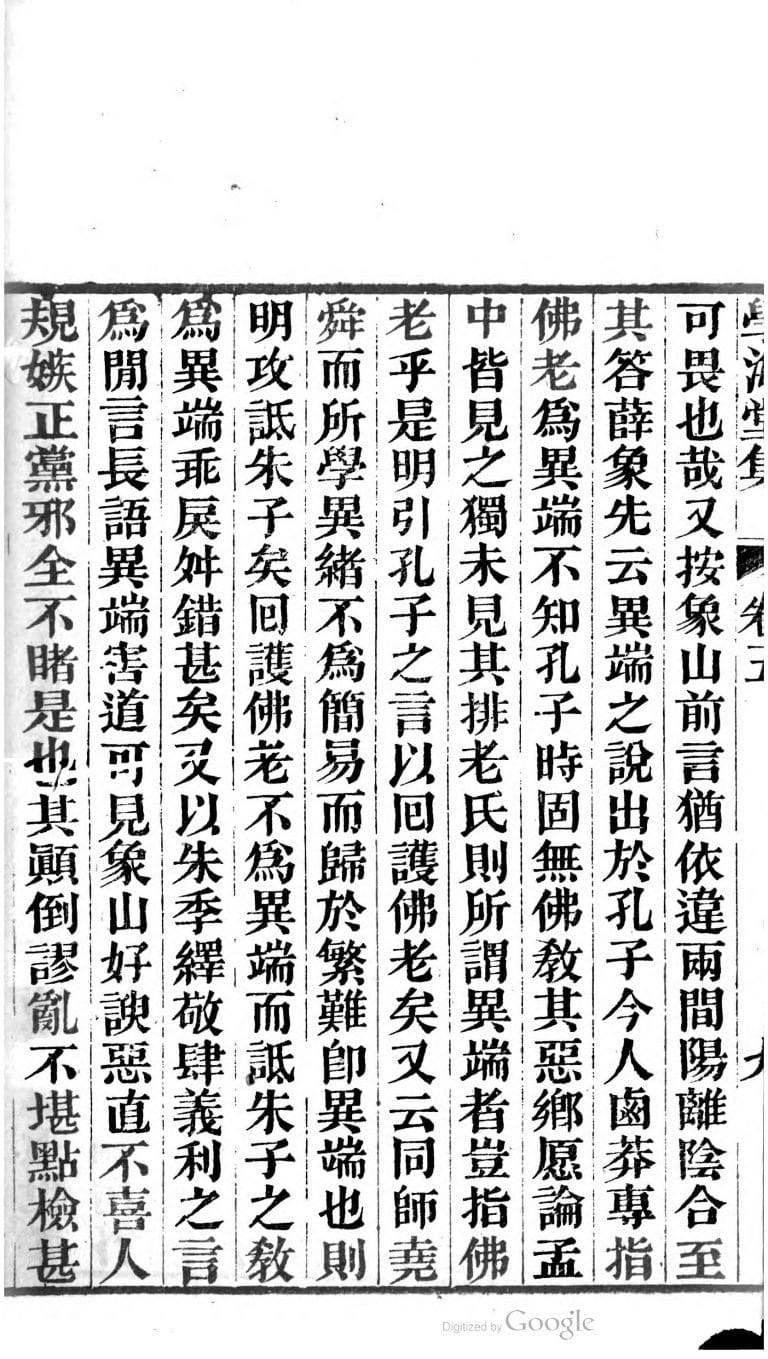 學海堂集 卷五 九
可畏也哉又按象山前言猶依違兩間陽離陰合至
其答薛象先云異端之說出於孔子今人鹵莽專指
佛老爲異端不知孔子時固無佛敎其惡鄉愿論孟
中皆見之獨未見其排老氏則所謂異端者豈指佛
老乎是明引孔子之言以囘護佛老矣又云同師堯
舜而所學異緒不爲簡易而歸於繁難卽異端也則
明攻詆朱子矣囘護佛老不爲異端而詆朱子之敎
爲異端乖戾舛錯甚矣又以朱季繹敬肆義利之言
爲閒言長語異端害道可見象山好諛惡直不喜人
規嫉正黨邪全不睹是也其顚倒謬亂不堪點檢甚
Digitized by Google